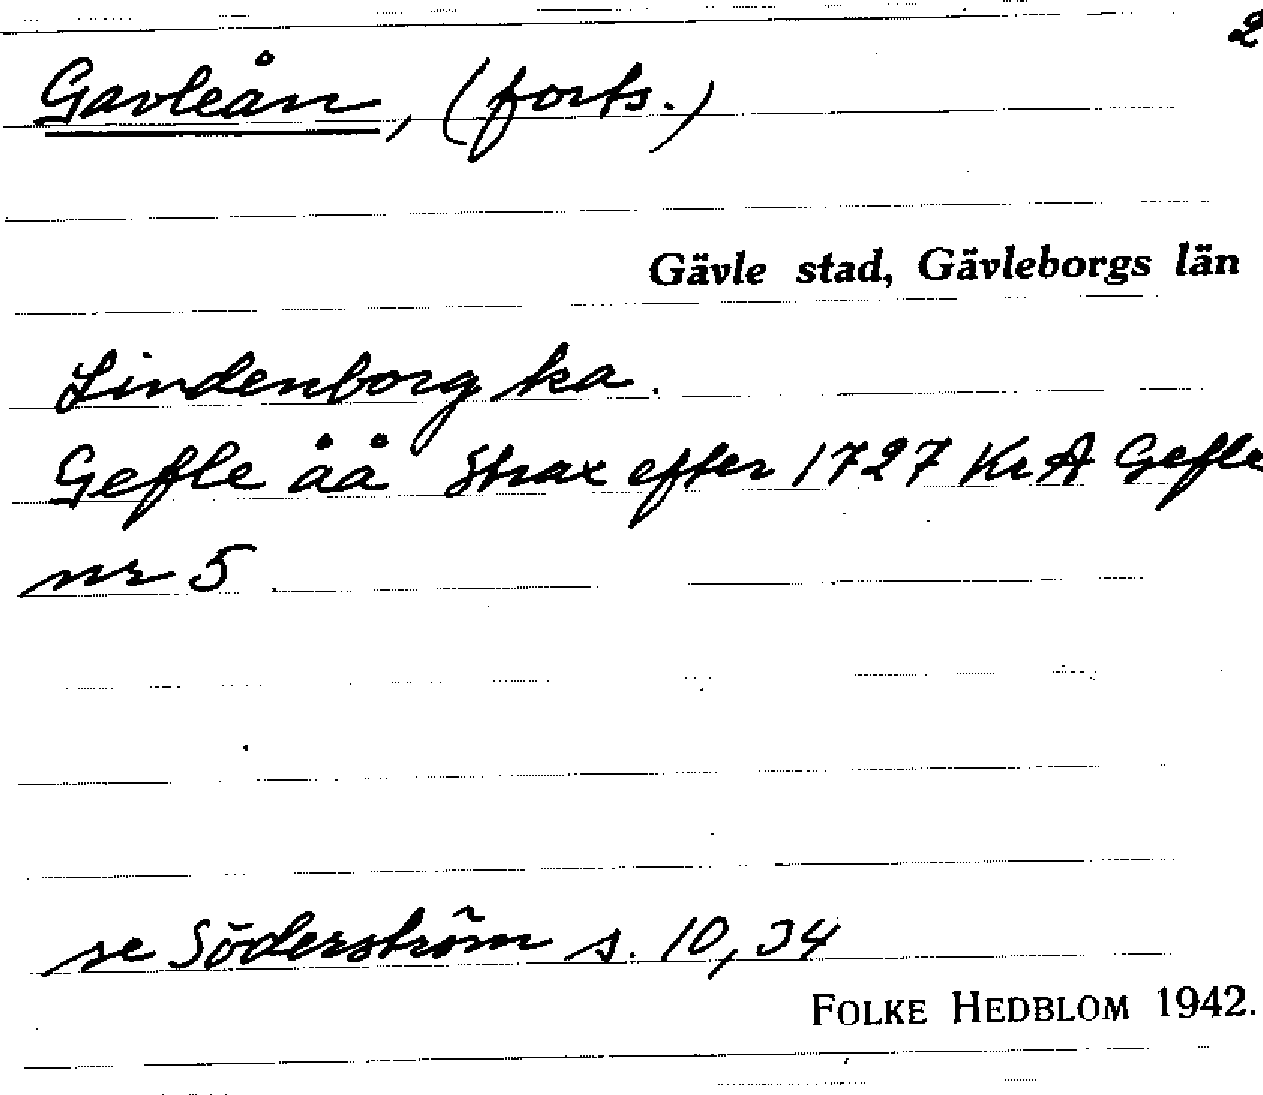 2
Gavleån, (forts.)
Gävle stad, Gävleborgs län
Lindenborg ka.
Gefle åå Strax efter 1727 KrA Gefle
nr 5
se Söderström s. 10, 34
FOLKE HEDBLOM 1942.